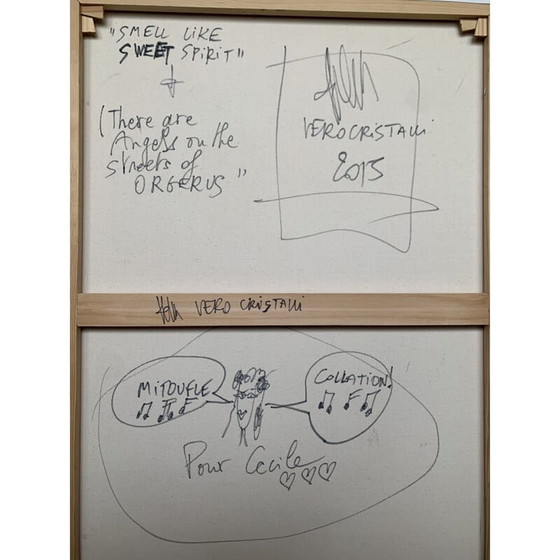 "SMELL LIKE
SWEET SPIRIT"
(There are
Angels on the
streets of
ORGERUS"
VEROCRISTALLI
2015
VERO CRISTALLI
MITOUFLE
COLLATION!
Pour Cecile